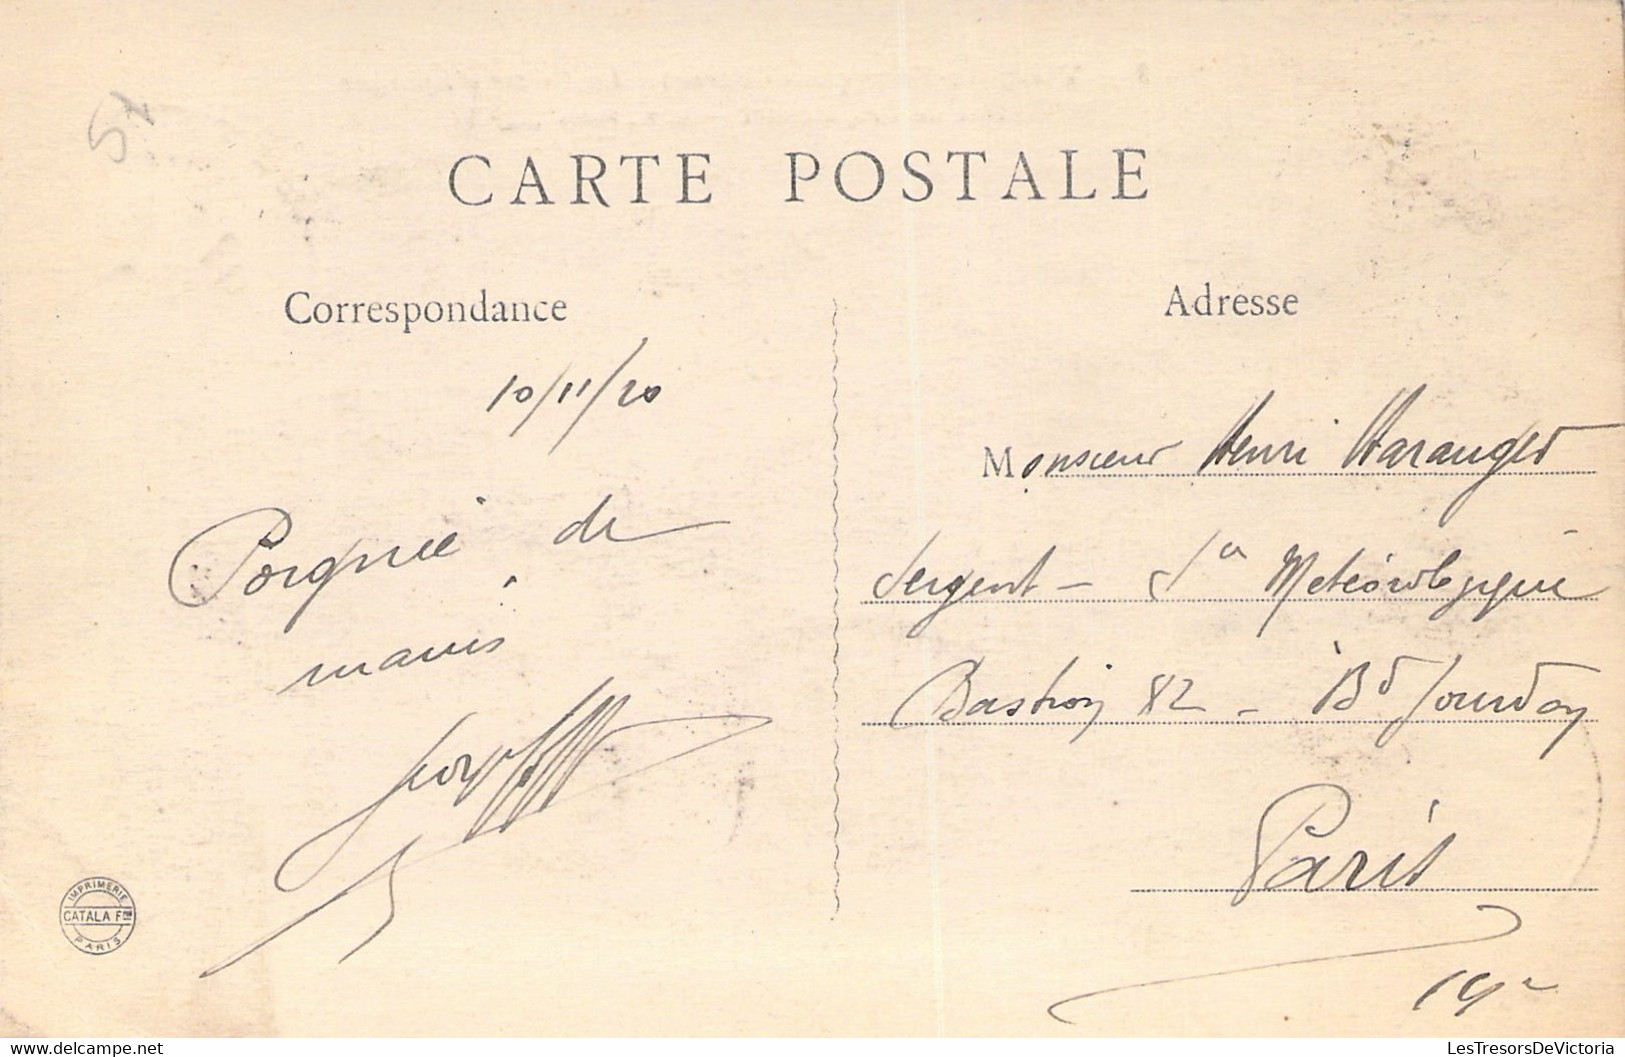 CARTE POSTALE
Correspondance
10/11/20
Poignée de
mains
Adresse
Monsieur Henri Haranger
Sergent - Son Météorologique
Bastion 82 - Bd Jourdan
Paris
IMPRIMERIE
CATALA Fres
PARIS
LesTresorsDeVictoria
https://www.delcampe.net